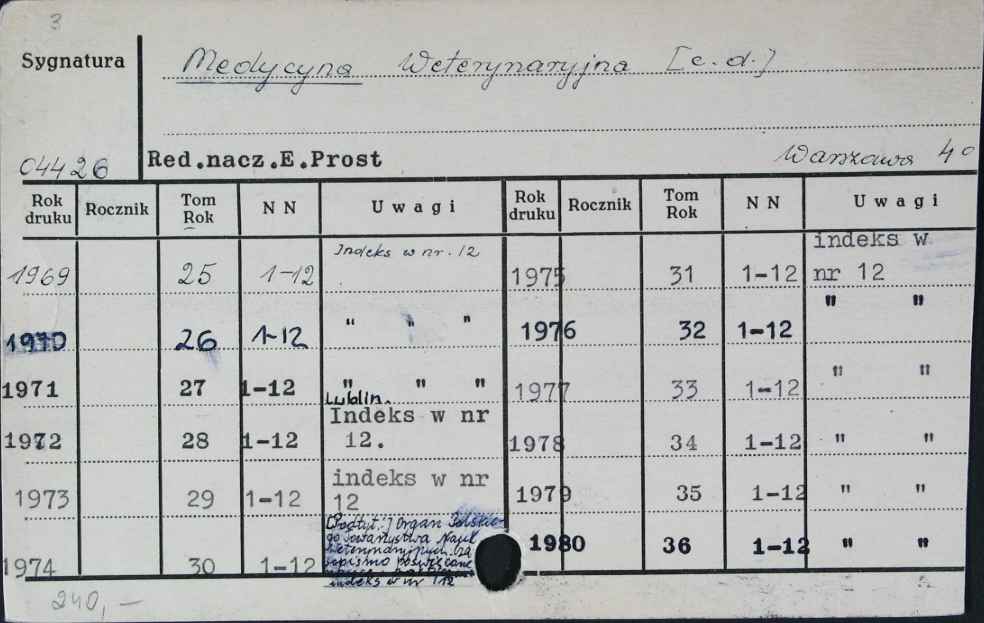 3
Sygnatura
Medycyna Weterynaryjna [c.d.]
04426
Red.nacz.E.Prost
Warszawa 40
Rok druku Rocznik Tom Rok NN Uwagi Rok druku Rocznik Tom Rok NN Uwagi
1969 25 1-12 Indeks w nr. 12 1975 31 1-12 indeks w nr 12
1970 26 1-12 " " " 1976 32 1-12 " "
1971 27 1-12 " " " 1977 33 1-12 " "
Lublin.
1972 28 1-12 Indeks w nr 12. 1978 34 1-12 " "
1973 29 1-12 indeks w nr 12 1979 35 1-12 " "
1974 30 1-12 [Podtyt.:] Organ Polskie-
go Towarzystwa Nauk
Weterynaryjnych.
czopismo poświęcone
indeks w nr 12
1980 36 1-12 " "
240,-